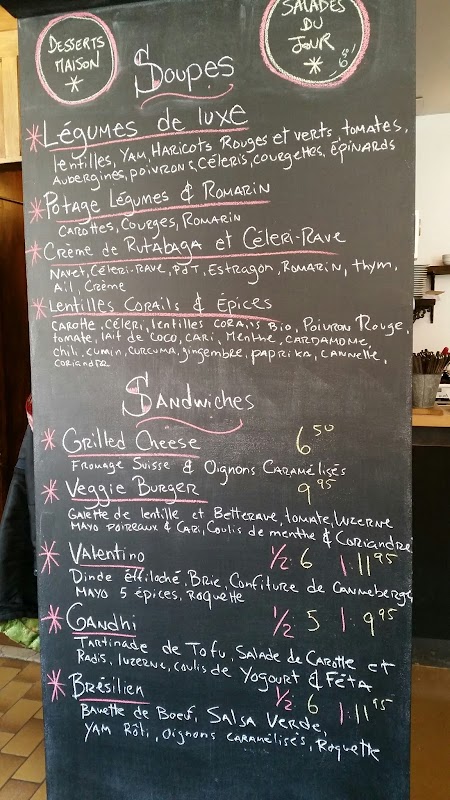 DESSERTS
MAISON
*
SALADES
DU
JOUR
*
-6.50-
Soupes
* Légumes de luxe
lentilles, YAM, HARICOTS ROUGES et verts, tomates,
AUBERGINES, POIVRONS, CÉLERIS, COURGETTES, ÉPINARDS
* Potage Légumes & Romarin
CAROTTES, COURGES, ROMARIN
* Crème de RUTABAGA et Céleri-RAVE
NAVET, CÉLERI-RAVE, PdT, ESTRAGON, ROMARIN, thym,
AIL, CRÈME
* Lentilles CORAILS & ÉPICES
CAROTTE, CÉLERI, lentilles CORAILS BIO, POIVRON ROUGE,
tomate, lAIT de COCO, CARI, MENTHE, CARDAMOME,
chili, CUMIN, CURCUMA, gingembre, PAPRIKA, CANNELLE,
CORIANDRE
SANDWICHES
* Grilled Cheese 6 50
FROMAGE SUISSE & OIGNONS CARAMÉLISÉS
* Veggie Burger 9 95
GALETTE de lentille et BETTERAVE, tomate, LUZERNE
MAYO POIREAUX & CARI, COULIS de menthe & CORIANDRE
* VALENTINO ½: 6 1: 11 95
DINDE Effilochée, BRIE, CONFITURE de CANNEBERGE,
MAYO 5 ÉPICES, ROQUETTE
* GANDHI ½: 5 1: 9 95
TARTINADE de TOFU, SALADE de CAROTTE et
RADIS, luzerne, coulis de YOGOURT & FÉTA
* Brésilien ½: 6 1: 11 95
BAVETTE de BOEUF, SALSA VERDE,
YAM RÔTI, OIGNONS CARAMÉLISÉS, ROQUETTE